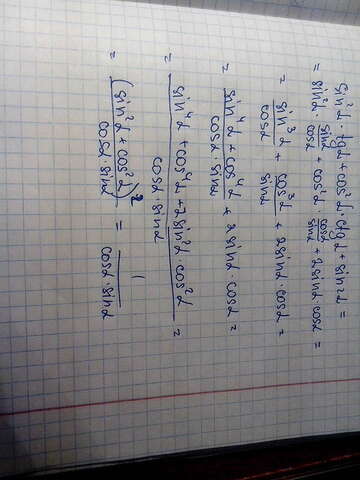 sin²α · tgα + cos²α · ctgα + sin2α =
= sin²α · sinα/cosα + cos²α · cosα/sinα + 2sinα · cosα =
= sin³α/cosα + cos³α/sinα + 2sinα · cosα =
= (sin⁴α + cos⁴α)/(cosα · sinα) + 2sinα · cosα =
= (sin⁴α + cos⁴α + 2sin²α · cos²α)/(cosα · sinα) =
= (sin²α + cos²α)²/(cosα · sinα) = 1/(cosα · sinα)